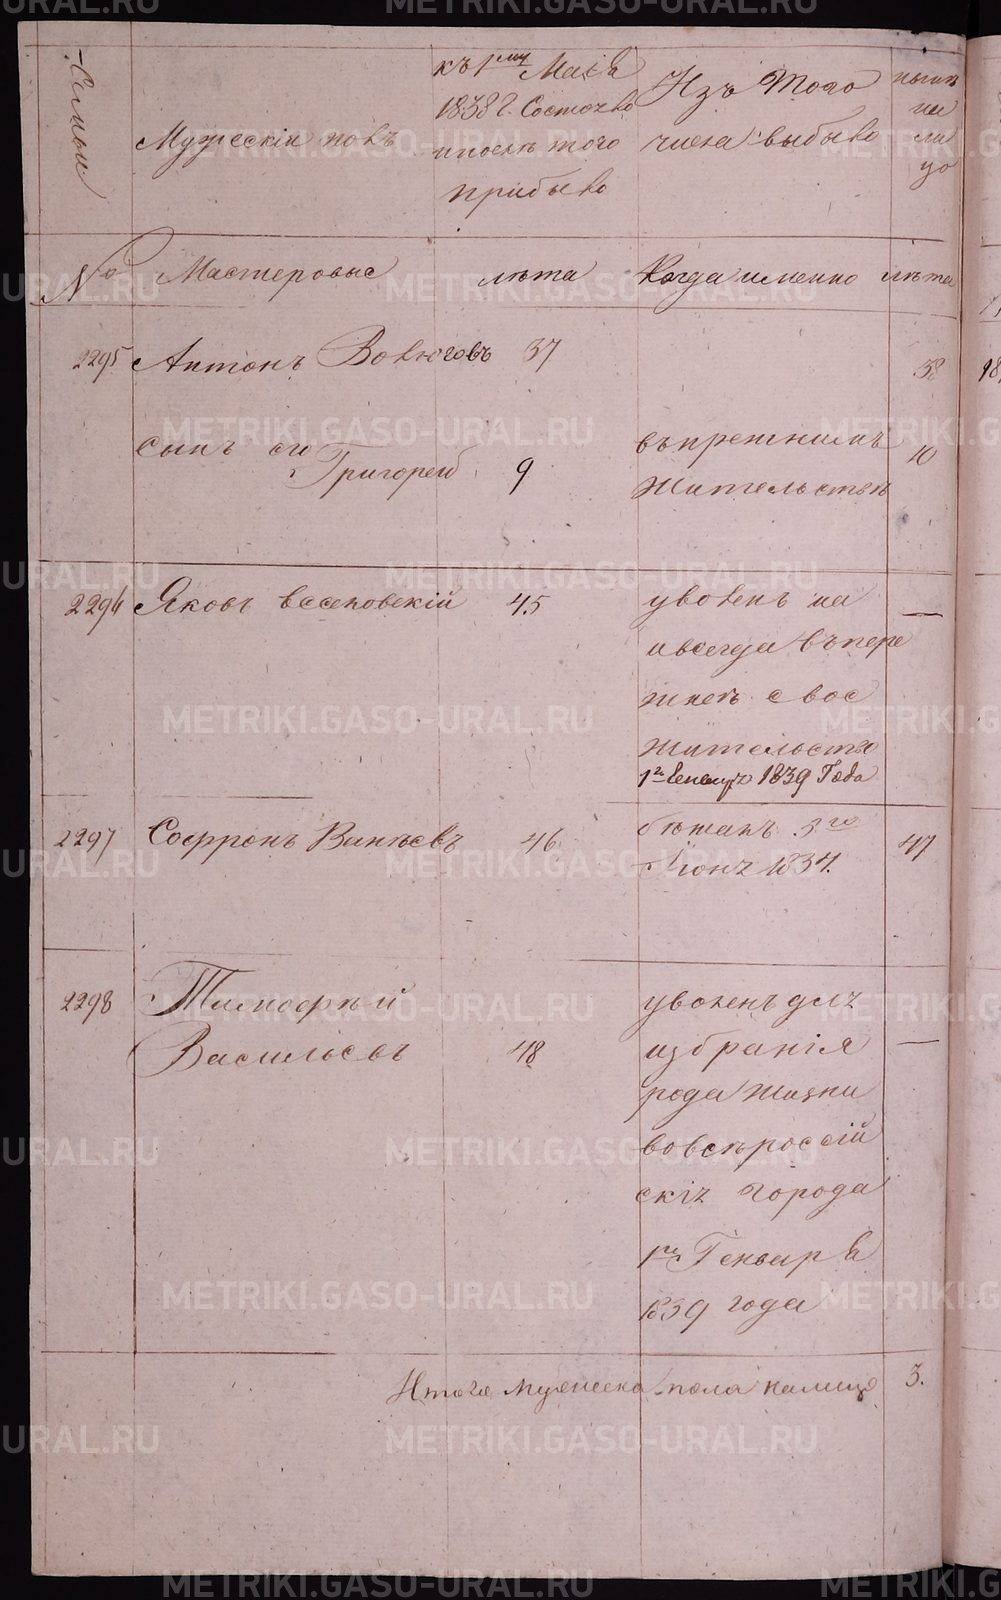 Семьи
Мужескій полъ
къ 1му Маія
1838 г. Состояло
и после того
прибыло
Изъ того
числа выбыло
ныне
на
ли
цо
№
Мастеровые
лѣта
Когда именно
лѣта
2295
Антонъ Волюговъ
37
38
сынъ его
Григорей
9
въ прежнимъ
жительствѣ
10
2296
Яковъ
45
уволенъ на
всегда въ пре
жнее свое
жительство
1го Генваря 1839 Года
—
2297
Софронъ
46
бѣжалъ 3го
Іюня 1834.
47
2298
Тимофѣй
Васильевъ
48
уволенъ для
избранія
рода жизни
во всѣ россій
скія города
1го Генваря
1839 года
—
Итого мужеска пола налицо
3.
METRIKI.GASO-URAL.RU